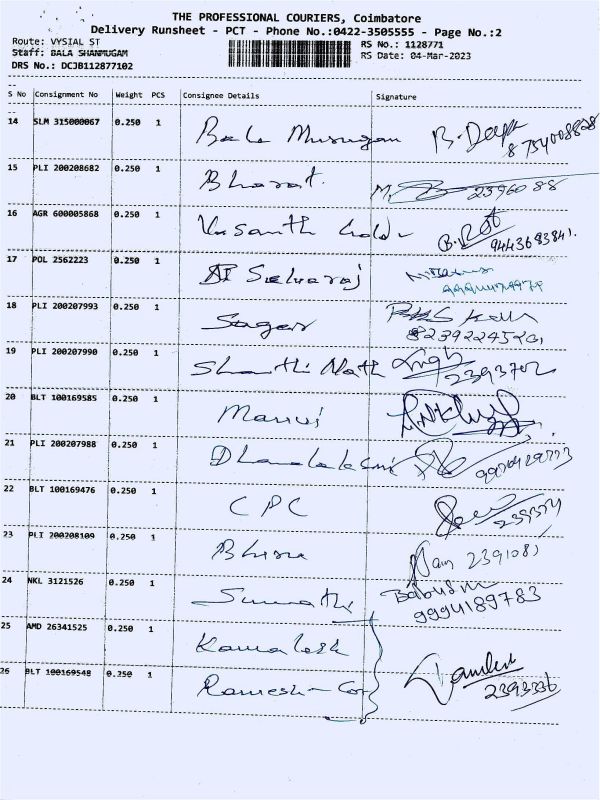 THE PROFESSIONAL COURIERS, Coimbatore
Delivery Runsheet - PCT - Phone No.:0422-3505555 - Page No.:2
Route: VYSIAL ST
Staff: BALA SHANMUGAM
DRS No.: DCJB112877102
RS No.: 1128771
RS Date: 04-Mar-2023
S No Consignment No Weight PCS Consignee Details Signature
14 SLM 315000067 0.250 1 Bala Murugan B. Deepa
8754008828
15 PLI 200208682 0.250 1 Bharat. 2396088
16 AGR 600005868 0.250 1 Vasanth
9443683841.
17 POL 2562223 0.250 1 Selvaraj
18 PLI 200207993 0.250 1 Sagar
19 PLI 200207990 0.250 1 Shanthi Nath
2393702
20 BLT 100169585 0.250 1
21 PLI 200207988 0.250 1 Dhanalakshmi
22 BLT 100169476 0.250 1 CPC
23 PLI 200208109 0.250 1 2391081
24 NKL 3121526 0.250 1 Sumathi
9994189783
25 AMD 26341525 0.250 1 Kamalesh
26 BLT 100169548 0.250 1 Ramesh
2393336